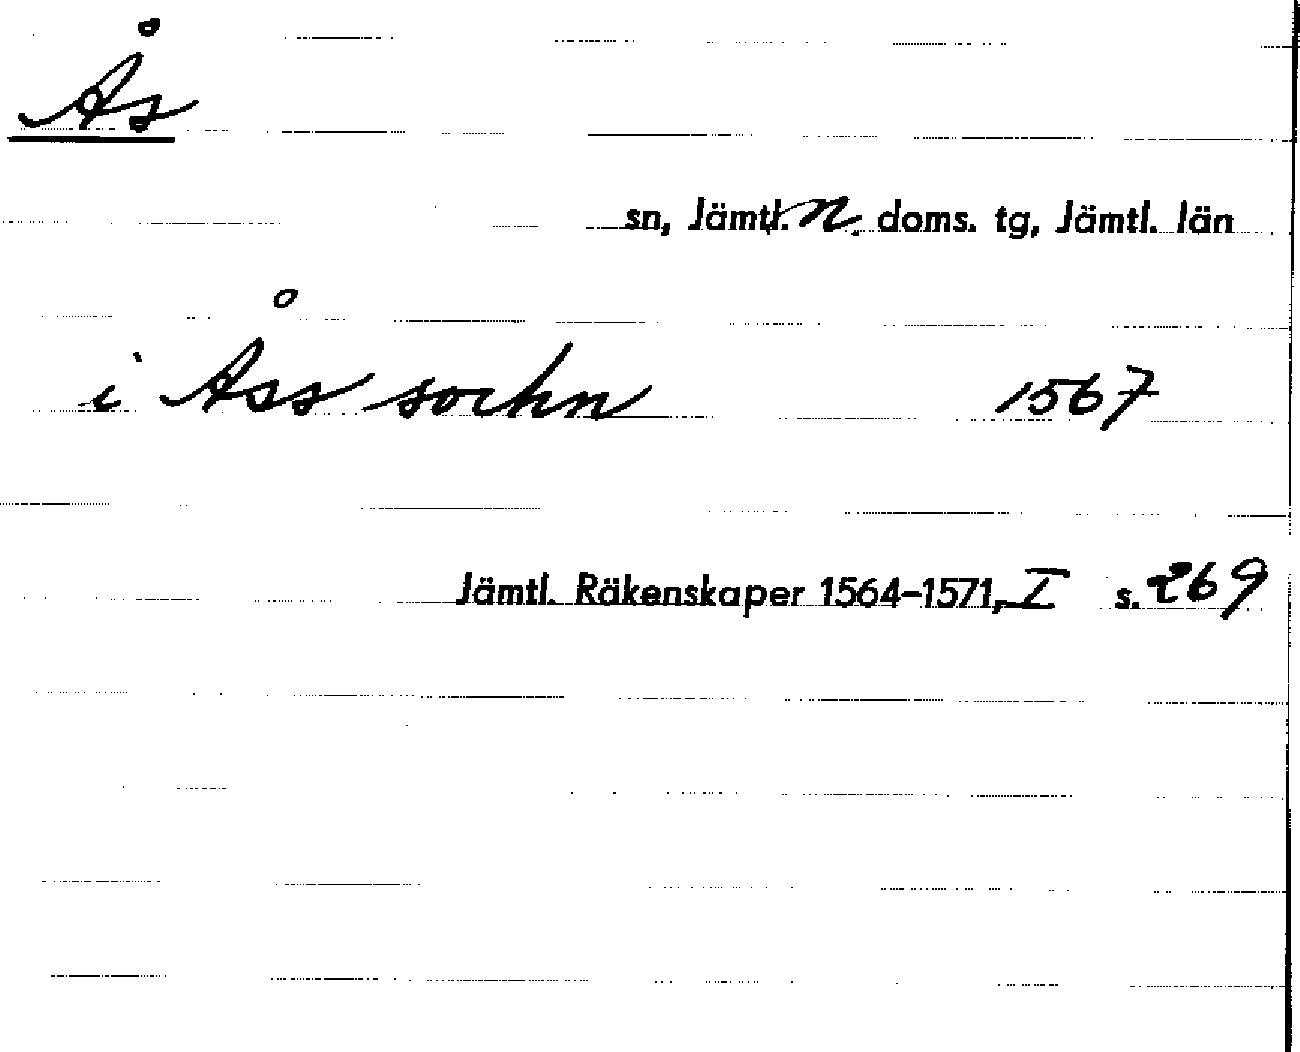 Ås
sn, Jämtl. n. doms. tg, Jämtl. län
i Åss sochn 1567
Jämtl. Räkenskaper 1564-1571, I s. 269